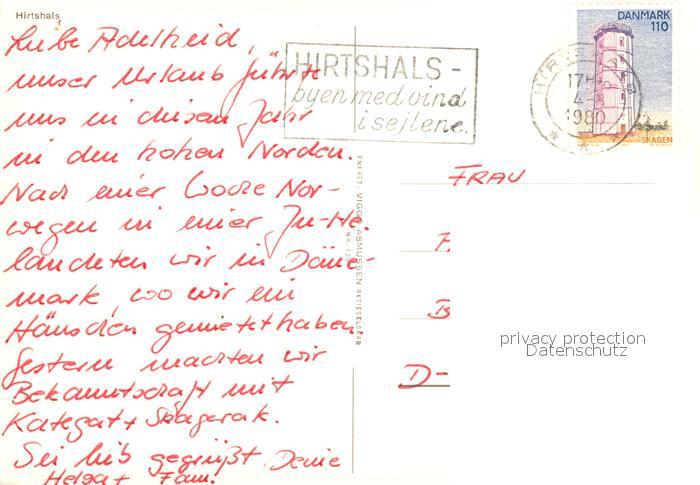 Hirtshals
Liebe Adelheid,
unser Urlaub führte
uns in diesem Jahr
in den hohen Norden.
Nach einer Woche Nor-
wegen in einer Ju-He.
landeten wir in Däne-
mark, wo wir ein
Häuschen gemietet haben.
Gestern machten wir
Bekanntschaft mit
Kategat + Skagerak.
Sei lieb gegrüßt, Deine
Helga + Fam.
HIRTSHALS -
byen med vind
i sejlene.
DANMARK
110
SKAGEN
HIRTSHALS
17
4-
1980
ENERET: VIGGO ASMUSSEN AKTIESELSKAB
FRAU
D-
privacy protection
Datenschutz